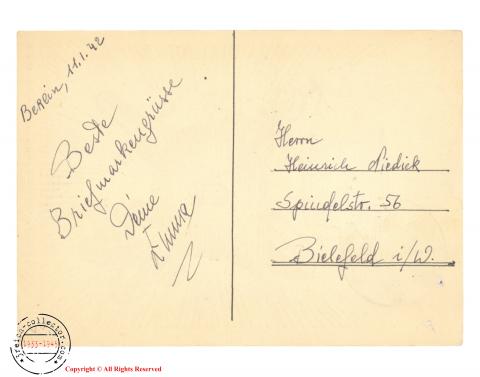 Berlin, 11.1.42
Beste
Briefmarkengrüsse
Deine
Herrn
Heinrich Niedick
Spindelstr. 56
Bielefeld i/W.
reich-collector.com
1933-1945
Copyright © All Rights Reserved